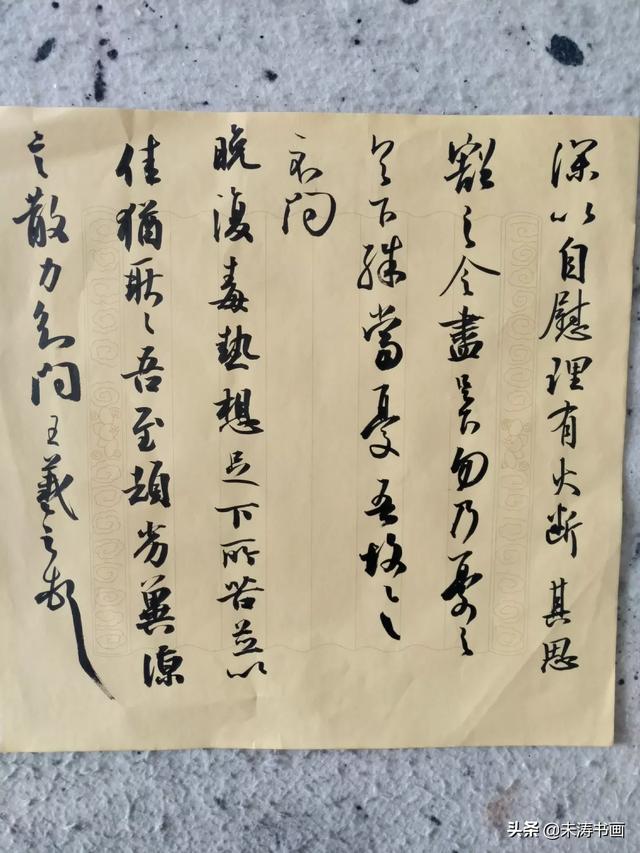 深以自慰理有大断其思
豁之令盡足下勿乃憂之
足下殊當憂吾故具
示问
晚復毒熱想足下所苦並以
佳猶耿々吾至頓劣冀涼
言散力知问王羲之報
头条 @未涛书画